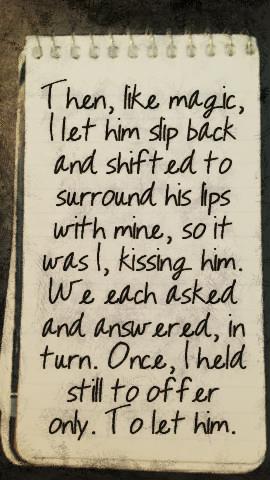 Then, like magic,
I let him slip back
and shifted to
surround his lips
with mine, so it
was I, kissing him.
We each asked
and answered, in
turn. Once, I held
still to offer
only. To let him.